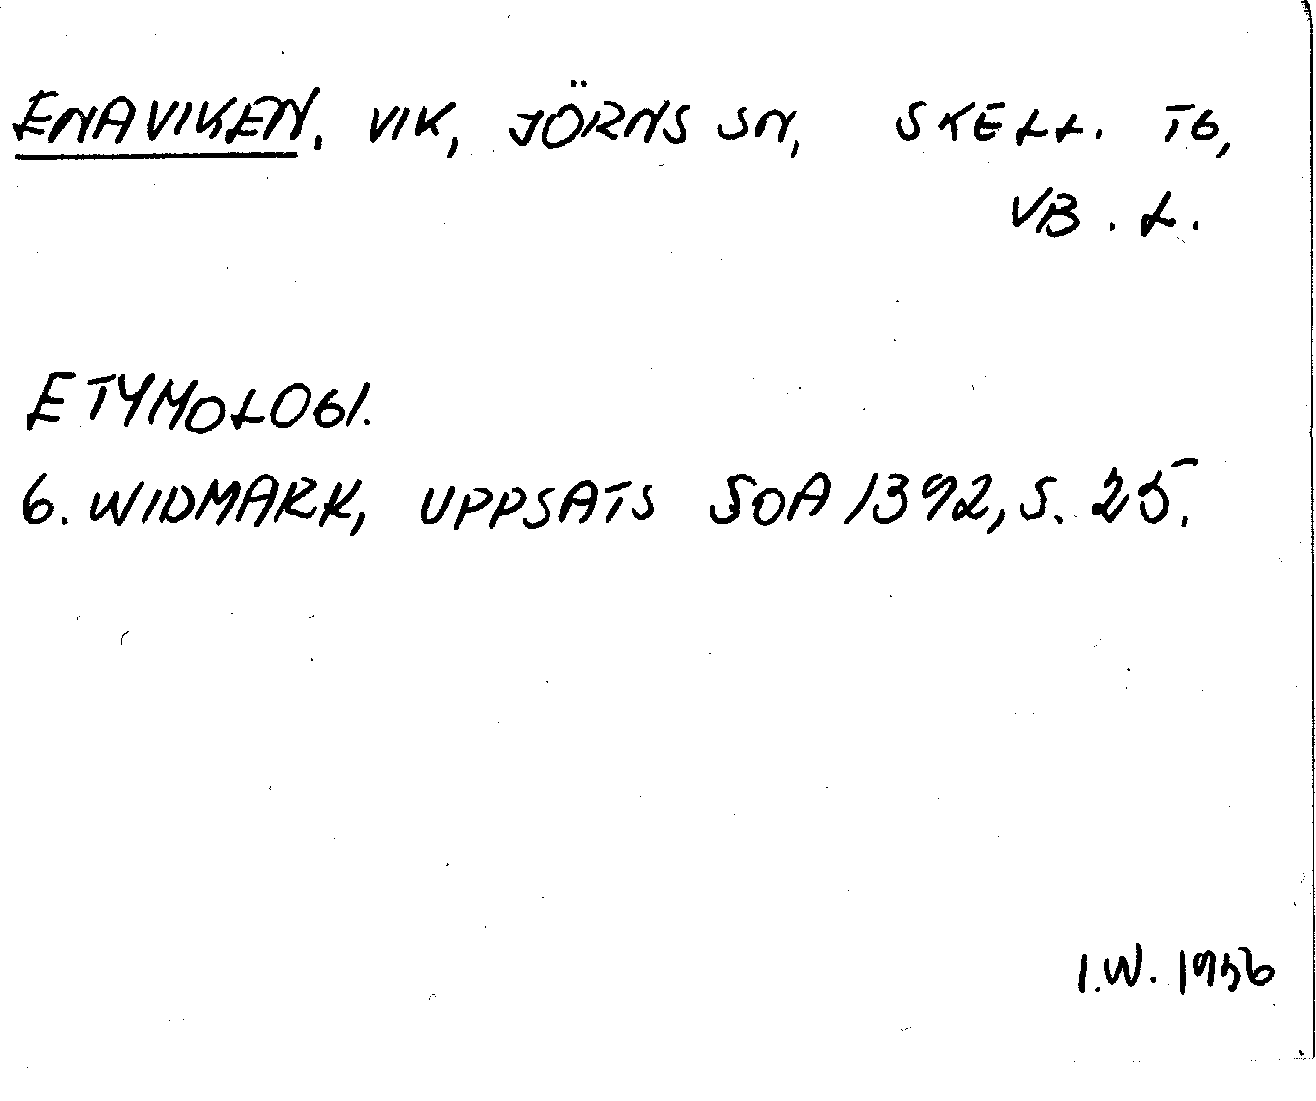 ENAVIKEN. VIK, JÖRNS SN, SKELL. TG,
VB. L.
ETYMOLOGI.
G. WIDMARK, UPPSATS SOA 1392, S. 25.
I.W. 1956